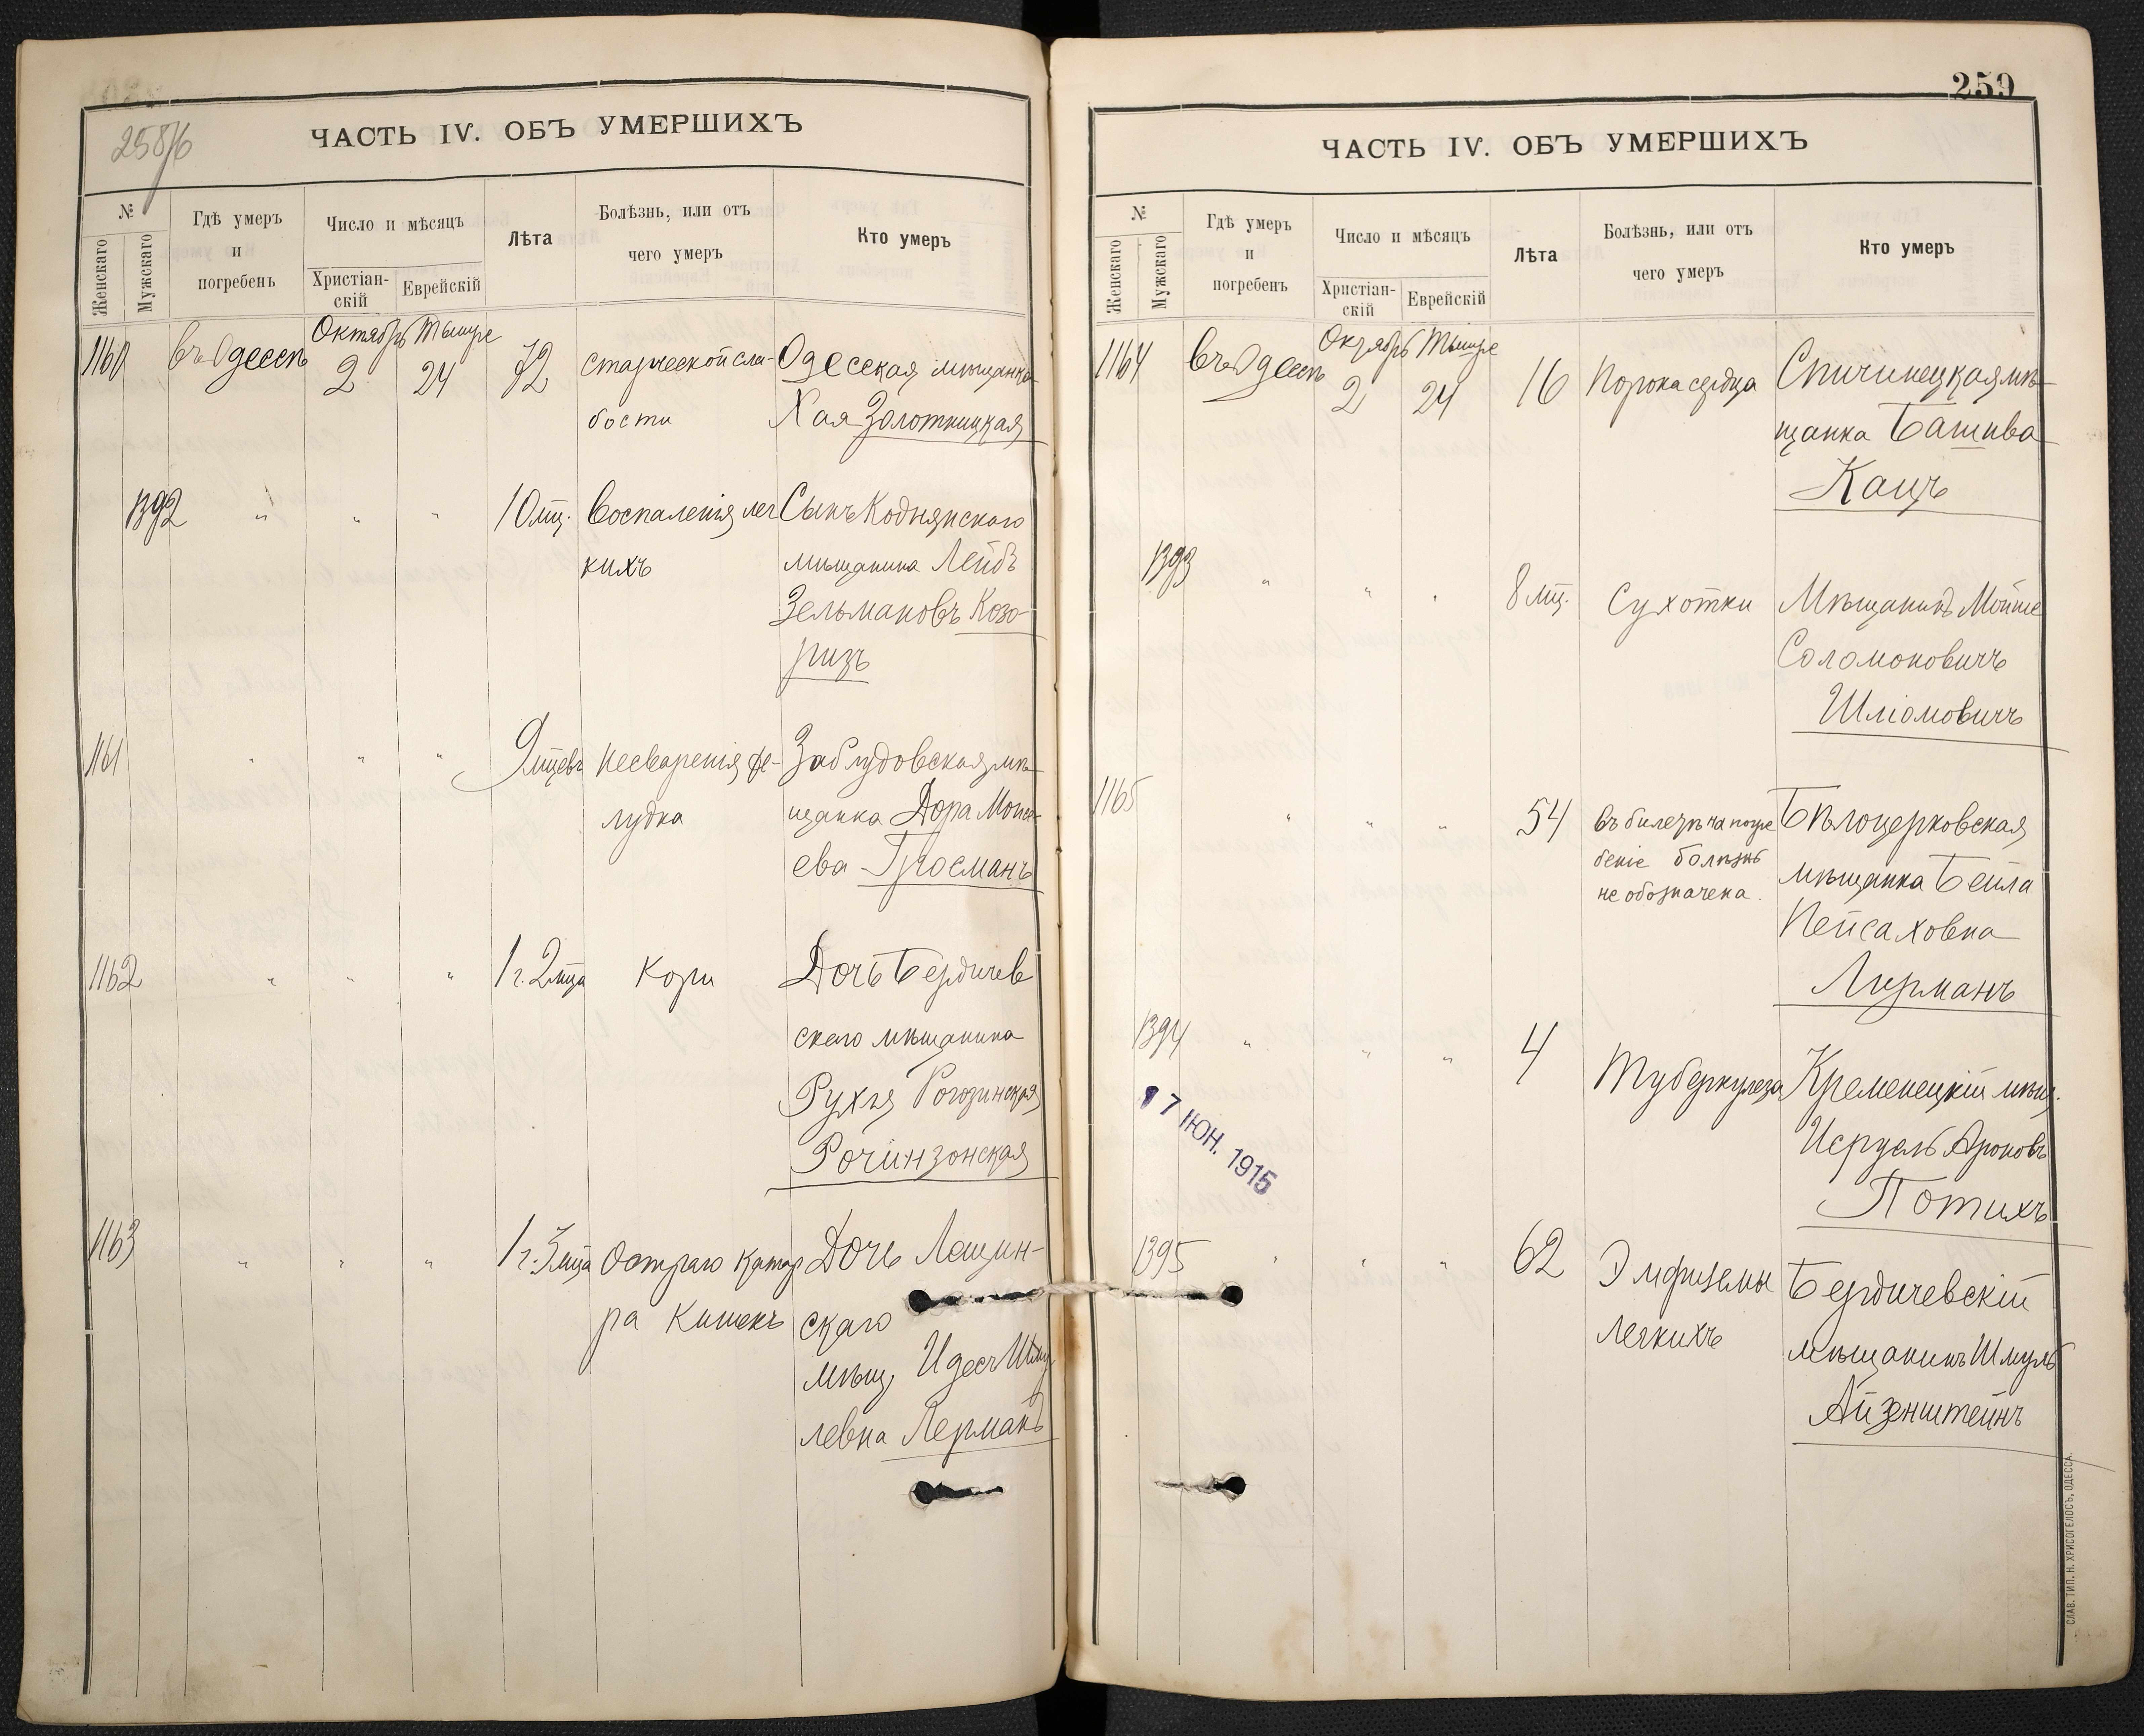 258/б
ЧАСТЬ IV. ОБЪ УМЕРШИХЪ
№
Женскаго
Мужскаго
Гдѣ умеръ
и
погребенъ
Число и мѣсяцъ
Христіан-
скій
Еврейскій
Лѣта
Болѣзнь, или отъ
чего умеръ
Кто умеръ
1160 въ Одессѣ Октябрь 2 Тышре 24 72 старческой сла- Одесская мѣщанка
бости Хая Золотницкая
1392 " " " 10 мц. Воспаленія лег Сынъ Коднянскаго
кихъ мѣщанина Лейбъ
Зельмановъ Козо-
ризъ
1161 " " " 9 мцевъ Несваренія же- Заблудовская мѣ-
лудка щанка Дора
ева Гросманъ
1162 " " " 1 г. 2 мца Кори Дочь Бердичев
скаго мѣщанина
Рухля Рогозинская
Рочинзонская
1163 " " " 1 г. 3 мца Остраго ката Дочь
ра кишекъ скаго
мѣщ. Идесъ Шму
левна Лерманъ
259
ЧАСТЬ IV. ОБЪ УМЕРШИХЪ
№
Женскаго
Мужскаго
Гдѣ умеръ
и
погребенъ
Число и мѣсяцъ
Христіан-
скій
Еврейскій
Лѣта
Болѣзнь, или отъ
чего умеръ
Кто умеръ
1164 въ Одессѣ Октябрь 2 Тышре 24 16 Порока сердца Спичинецкая мѣ-
щанка Башива
Кацъ
1393 " " " 8 мц. Сухотки Мѣщанинъ Мойше
Соломоновичъ
Шліомовичъ
1165 " " " 54 въ билетѣ на погре Бѣлоцерковская
беніе болѣзнь мѣщанка Бейла
не обозначена. Пейсаховна
Лирманъ
1394 " " " 4 Туберкулеза Кременецкій мѣщ.
17 ІЮН. 1915
Исруель Ароновъ
Потихъ
1395 " " " 62 Эмфиземы Бердичевскій
легкихъ мѣщанинъ Шмуль
Айзенштейнъ
СЛАВ. ТИП. Н. ХРИСОГЕЛОСЪ, ОДЕССА.